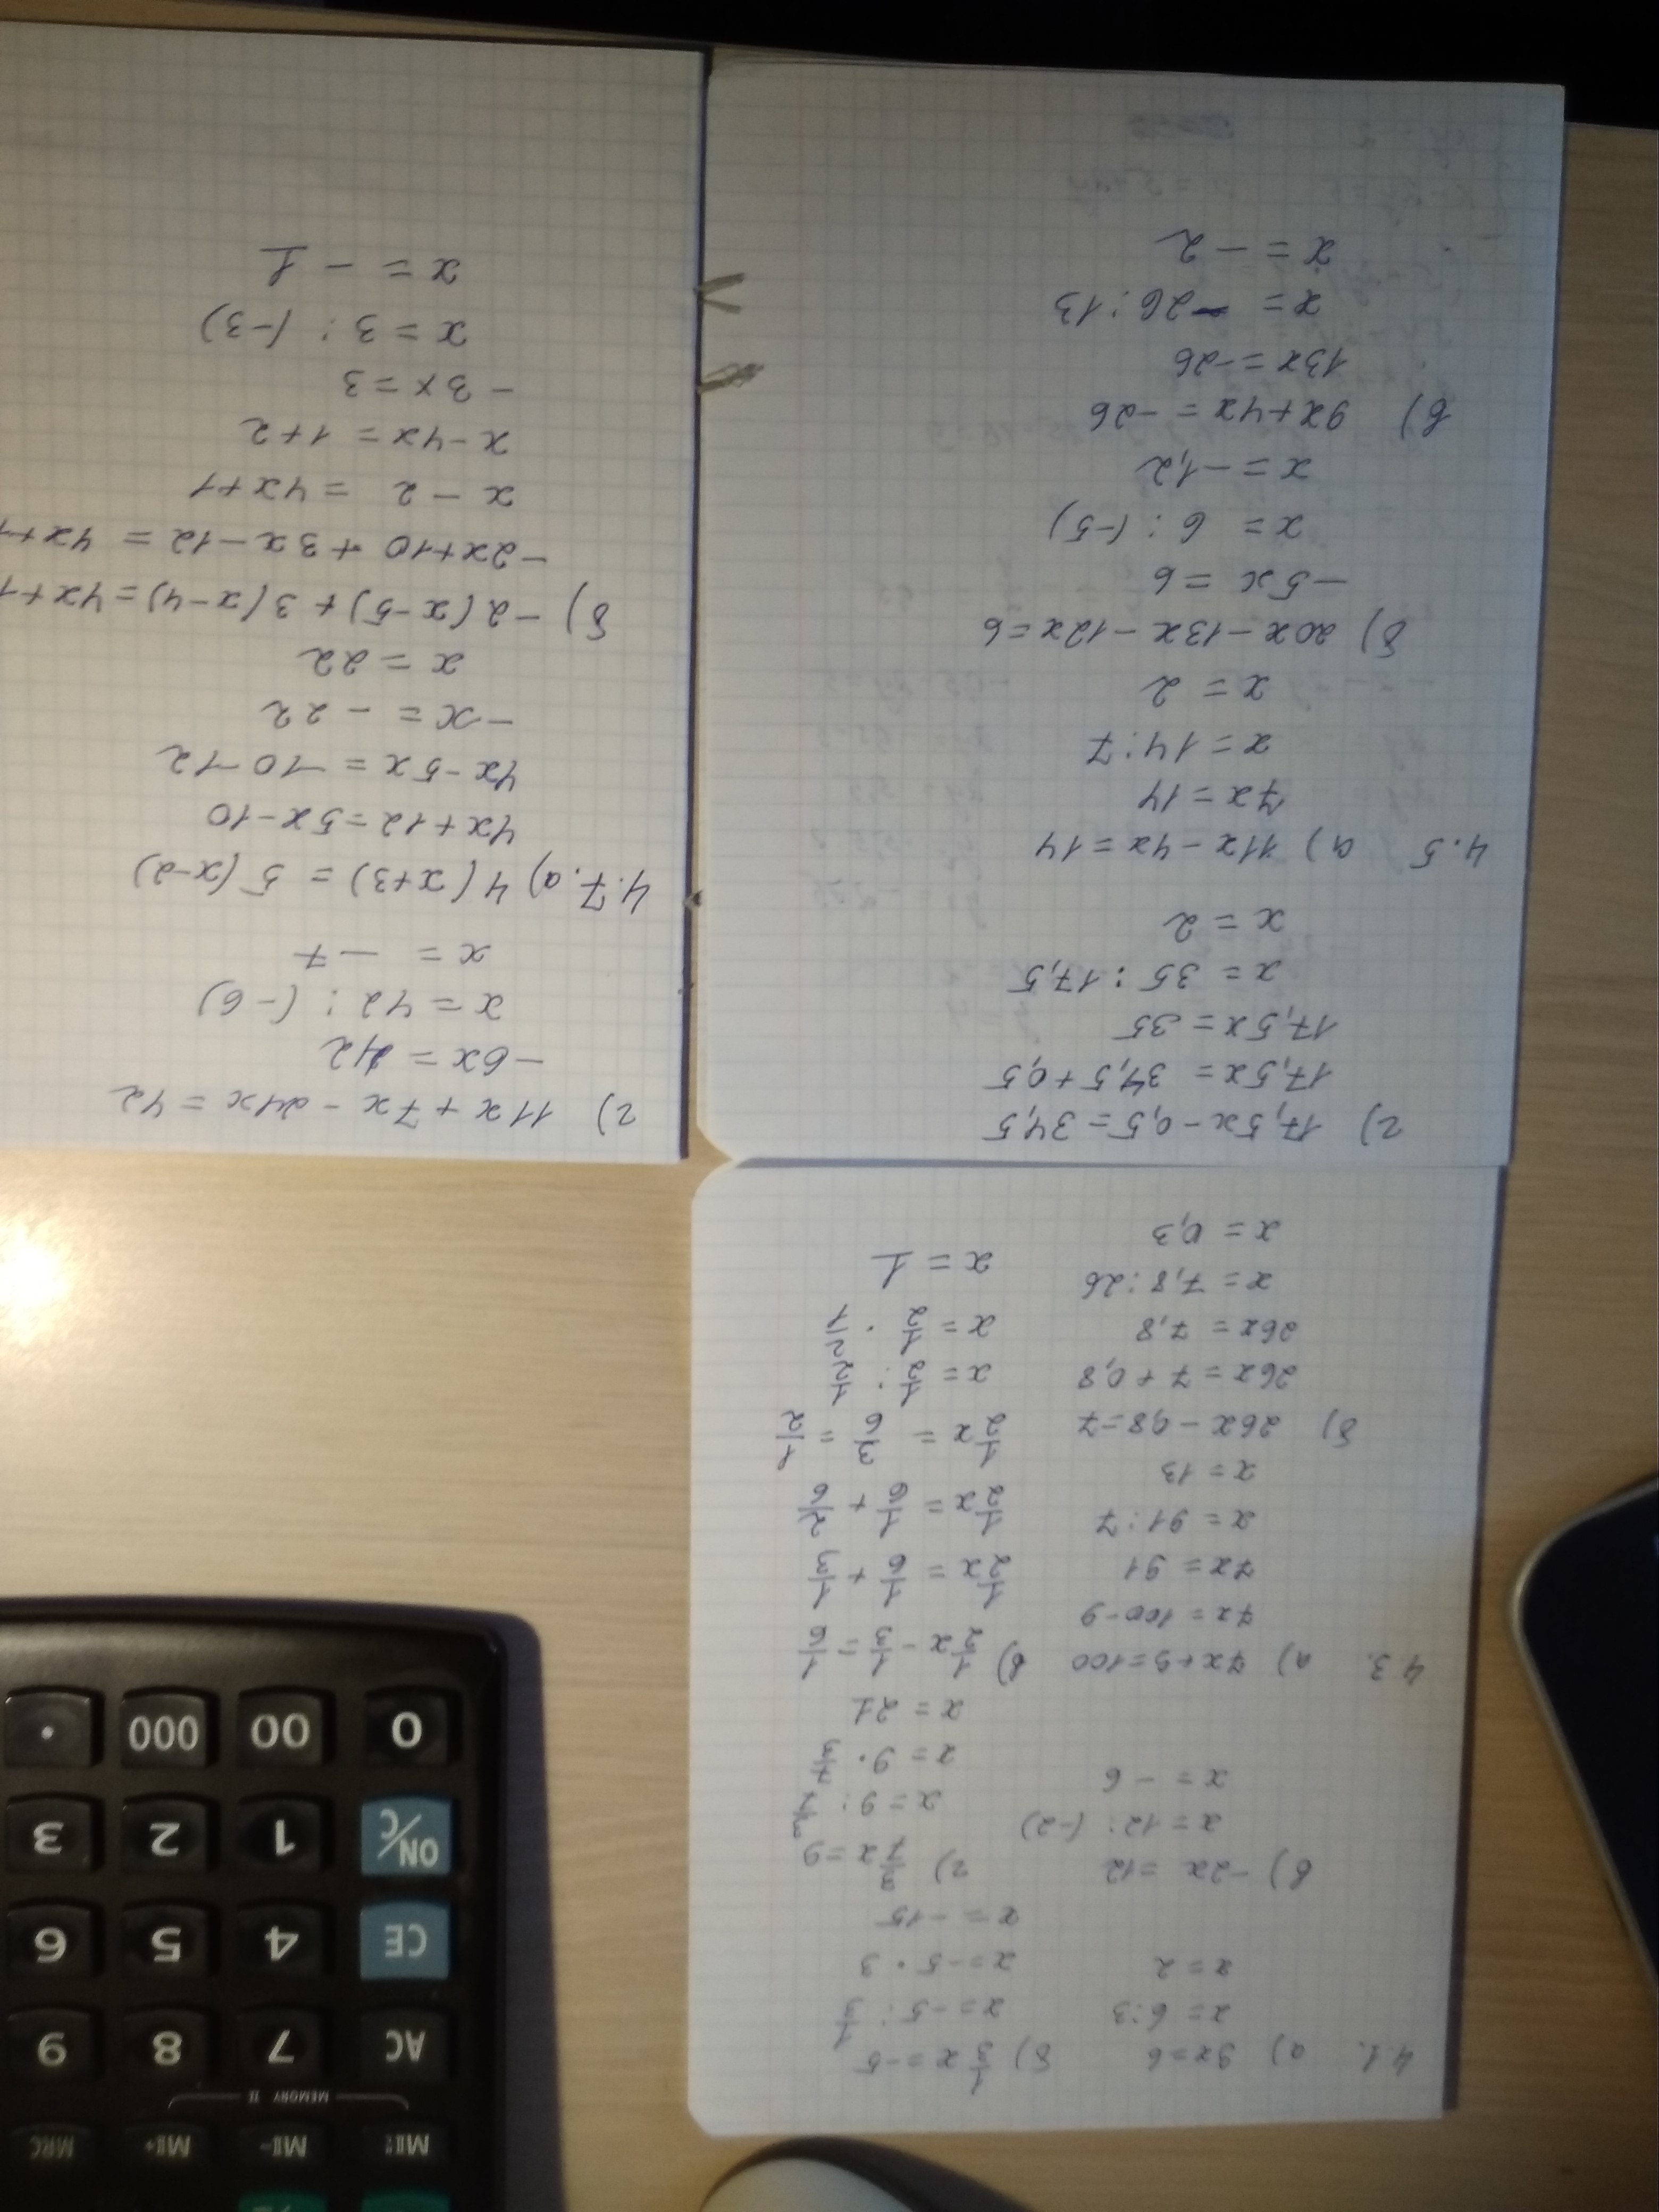 4.1. а) 3x=6 б) 1/3 x=-5
x=6:3 x=-5:1/3
x=2 x=-5·3
x=-15
в) -2x=12 г) 3/7 x=9
x=12:(-2) x=9:3/7
x=-6 x=9·7/3
x=21
4.3. а) 7x+9=100 в) 1/2 x-1/3=1/6
7x=100-9 1/2 x=1/6+1/3
7x=91 1/2 x=1/6+2/6
x=91:7 1/2 x=3/6=1/2
x=13 x=1/2:1/2
б) 26x-0,8=7 x=1/2·2/1
26x=7+0,8 x=1
26x=7,8
x=7,8:26
x=0,3
г) 17,5x-0,5=34,5
17,5x=34,5+0,5
17,5x=35
x=35:17,5
x=2
4.5 а) 11x-4x=14
7x=14
x=14:7
x=2
б) 20x-13x-12x=6
-5x=6
x=6:(-5)
x=-1,2
в) 9x+4x=-26
13x=-26
x=-26:13
x=-2
г) 11x+7x-24x=42
-6x=42
x=42:(-6)
x=-7
4.7. а) 4(x+3)=5(x-2)
4x+12=5x-10
4x-5x=-10-12
-x=-22
x=22
б) -2(x-5)+3(x-4)=4x+1
-2x+10+3x-12=4x+1
x-2=4x+1
x-4x=1+2
-3x=3
x=3:(-3)
x=-1
MII- MII+ MRC
MEMORY II
AC 7 8 9
CE 4 5 6
ON/C 1 2 3
0 00 000 ·